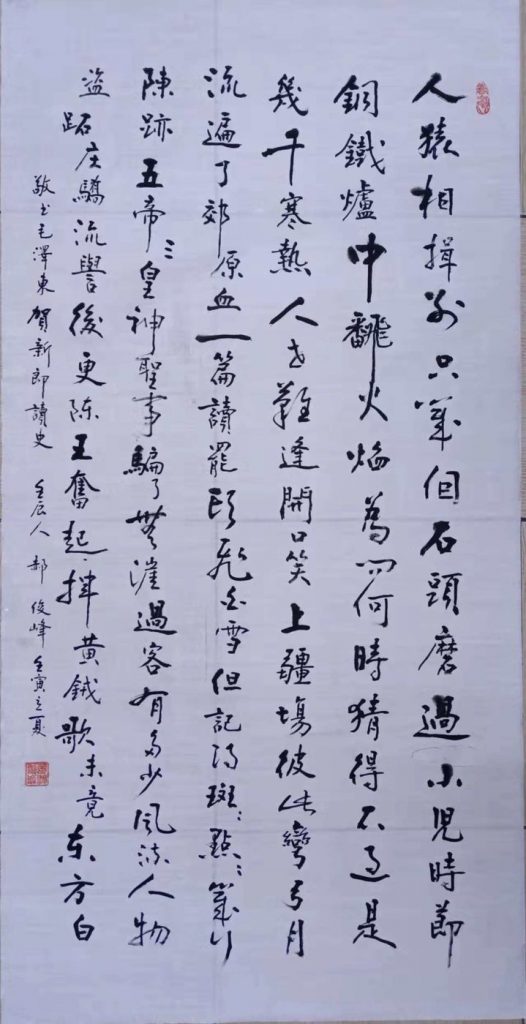 人猿相揖别只幾個石頭磨過小児時節
銅鐵爐中飜火焰為问何時猜得不过是
幾千寒熱人世難逢開口笑上疆場彼此彎弓月
流遍了郊原血一篇讀罷头飛白雪但記得斑:點:幾行
陳跡五帝三皇神聖事騙了無涯過客有多少風流人物
盜跖庄蹻流譽後更陈王奮起揮黄鉞歌未竟东方白
敬书毛澤東賀新郎讀史 壬辰人郝俊峰壬寅立夏